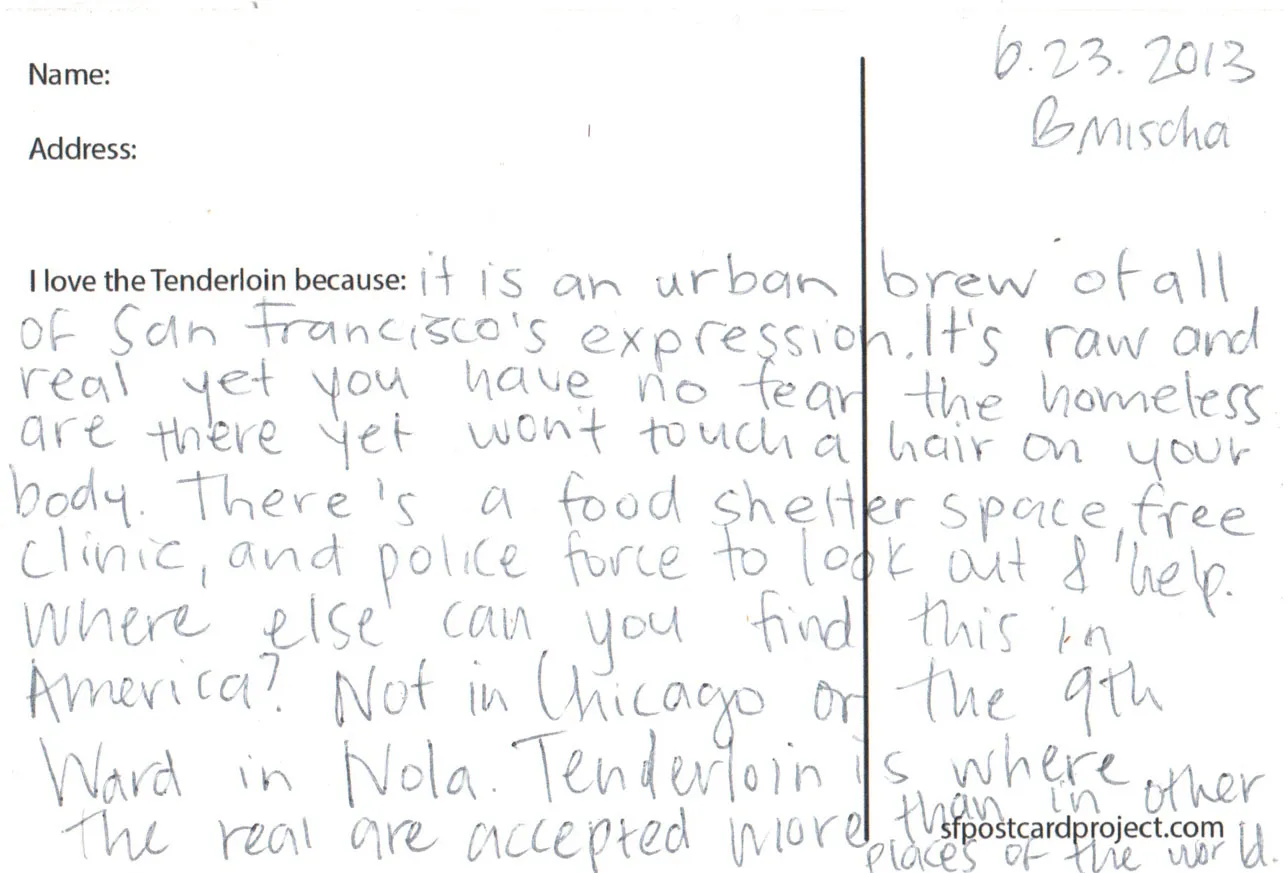 6.23.2013
BMischa
Name:
Address:
I love the Tenderloin because: it is an urban brew of all
of San Francisco's expression. It's raw and
real yet you have no fear the homeless
are there yet won't touch a hair on your
body. There's a food shelter space, free
clinic, and police force to look out & help.
Where else can you find this in
America? Not in Chicago or the 9th
Ward in Nola. Tenderloin is where
the real are accepted more than in other
places of the world.
sfpostcardproject.com